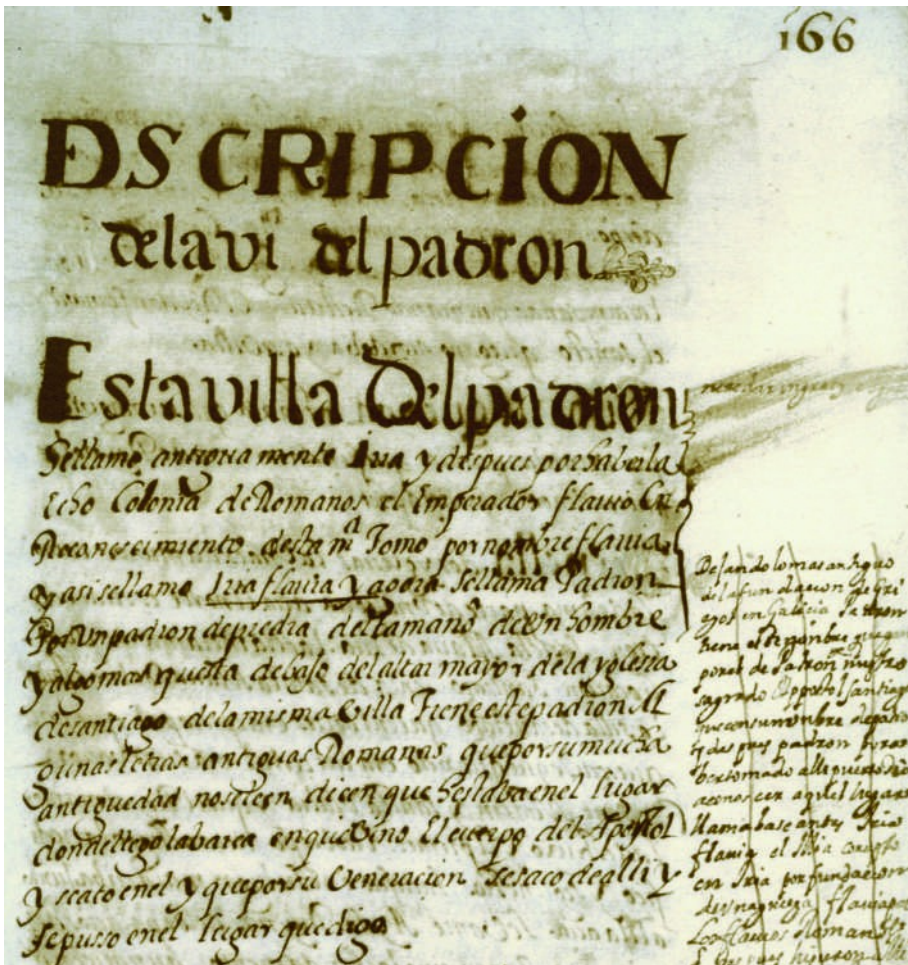 166
DSCRIPCION
de la vi del padron
Esta villa Del padron
Se llamo antigua mente Iria y despues por haberla
Echo Colonia de Romanos el Emperador flavio En
Reconoscimiento desta md Tomo por nombre flavia
y asi se llamo Iria flavia y aora se llama Padron
Por Un padron de piedra del tamaño de Un hombre
y algo mas questa debajo del altar mayor de la yglesia
de santiago de la misma Villa Tiene este padron Al
gunas letras antiguas Romanas que por su mucha
antiguedad no se leen dicen que Estaba en el lugar
donde llego la barca en que Vino El cuerpo del Apostol
y se ato en el y que por su Veneracion se saco de alli y
se pusso en el lugar que digo
Dejando lo mas antiguo
de la fundacion de Gri
egos en Galicia Padron
tiene este nombre
por el de Padron nuestro
sagrado Appostol santiago
que con su nombre
y despues padron
aver tomado alli puerto
a conoscer aquel lugar
llamabase antes Iria
flavia el Iria
en Iria por fundacion
flavia
Los flavios Romanos